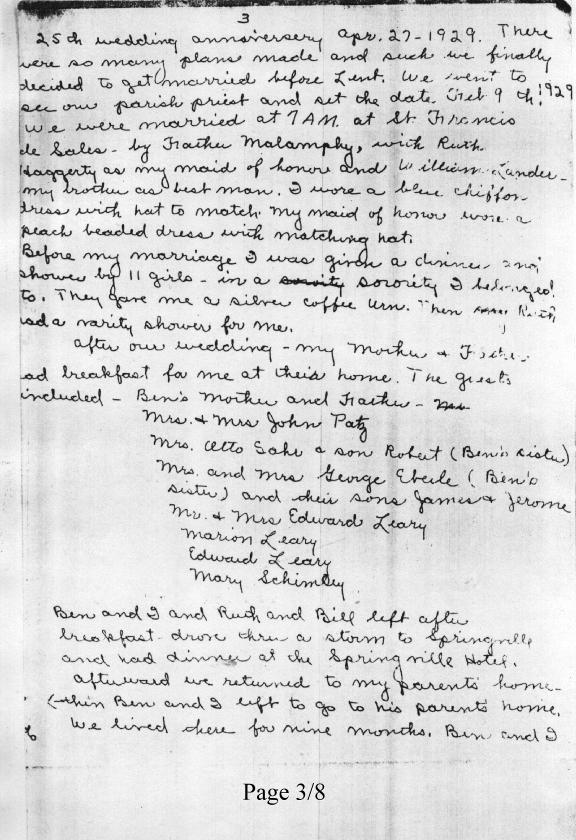 3
25th wedding anniversery apr. 27-1929. There
were so many plans made and such we finally
decided to get married before Lent. We went to
see our parish priest and set the date Feb 9 th! 1929
We were married at 7 AM. at St Francis
de Sales - by Father Malamphy, with Ruth
Haggerty as my maid of honor and William Lander -
my brother as best man. I wore a blue chiffon
dress with hat to match. My maid of honor wore a
peach beaded dress with matching hat.
Before my marriage I was given a dinner and
shower by 11 girls - in a sorority I belonged
to. They gave me a silver coffee urn. Then Ruth
had a varity shower for me.
After our wedding - my Mother & Father
had breakfast for me at their home. The guests
included - Ben's Mother and Father -
Mrs. & Mrs John Patz
Mrs. Otto Sahr & son Robert (Ben's sister)
Mrs. and Mrs George Eberle (Ben's
sister) and their sons James & Jerome
Mr. & Mrs Edward Leary
Marion Leary
Edward Leary
Mary Schimley
Ben and I and Ruth and Bill left after
breakfast drove thru a storm to Springville
and had dinner at the Springville Hotel.
Afterward we returned to my parents home -
then Ben and I left to go to his parents home.
We lived there for nine months. Ben and I
Page 3/8